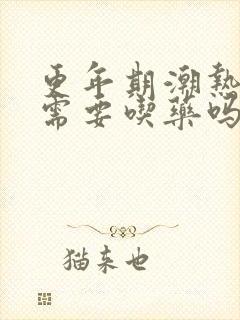 更年期潮熱
需要喫藥吗
猫来也